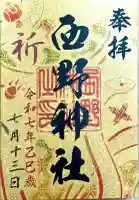 奉拝
祈
西野神社
令和七年乙巳歳
七月十三日